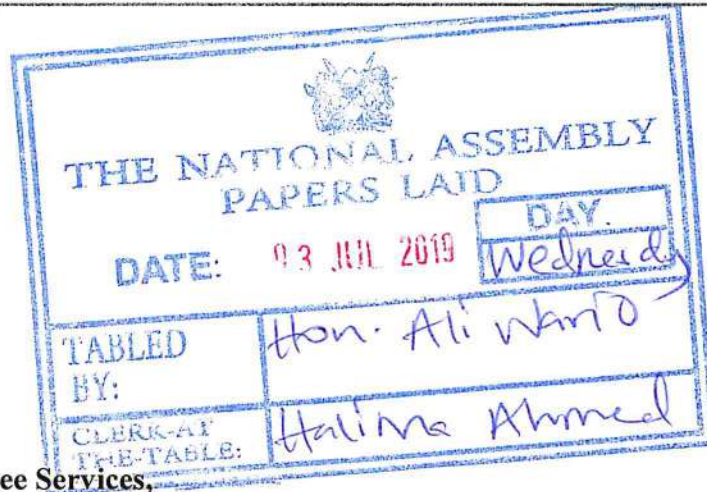 THE NATIONAL ASSEMBLY
PAPERS LAID
DATE: 03 JUL 2019
DAY.
Wednesday
TABLED BY:
Hon. Ali Wario
CLERK-AT THE-TABLE:
Halima Ahmed
ee Services,